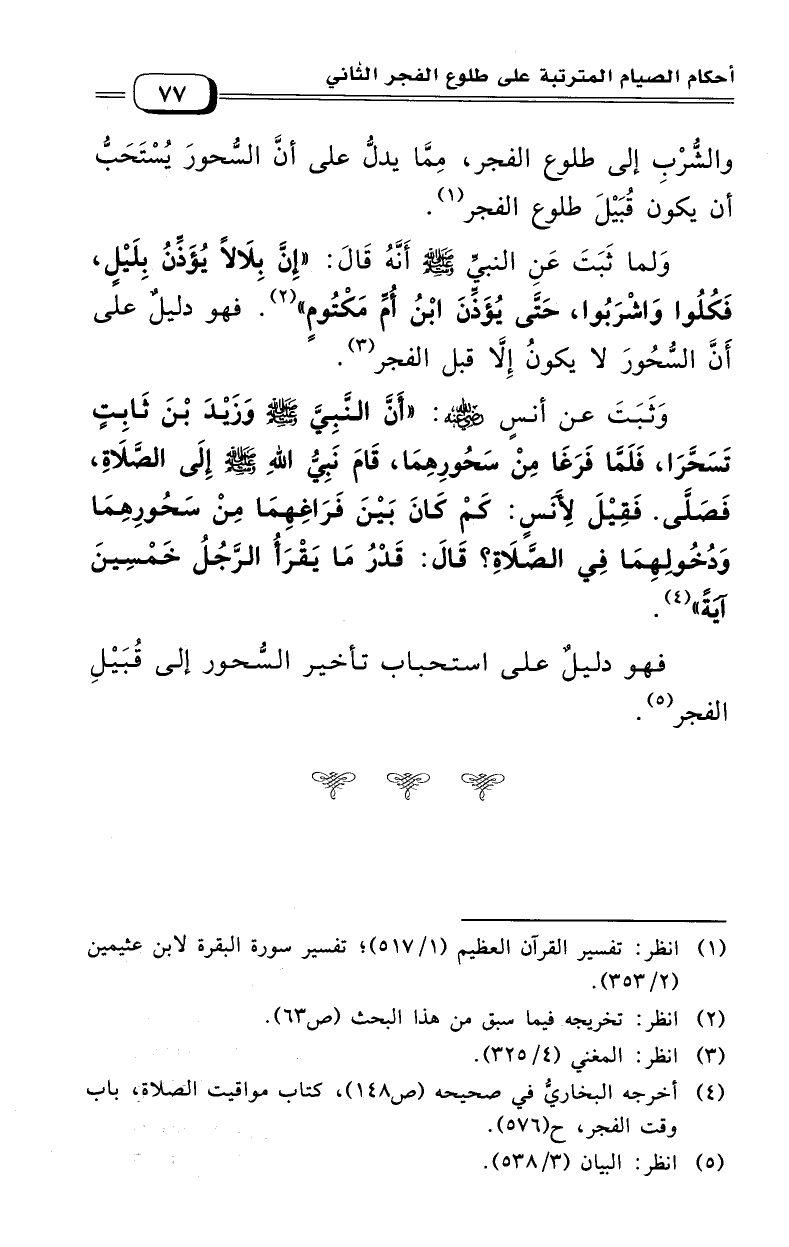 أحكام الصيام المترتبة على طلوع الفجر الثاني
٧٧
والشُّرْبِ إلى طلوع الفجر، مِمَّا يدلُّ على أنَّ السُّحورَ يُسْتَحَبُّ
أن يكون قُبَيْلَ طلوع الفجر(١).
وَلما ثَبَتَ عَنِ النبيِّ ﷺ أَنَّهُ قَالَ: «إِنَّ بِلَالاً يُؤَذِّنُ بِلَيْلٍ،
فَكُلُوا وَاشْرَبُوا، حَتَّى يُؤَذِّنَ ابْنُ أُمِّ مَكْتُومٍ»(٢). فهو دليلٌ على
أَنَّ السُّحُورَ لا يكونُ إِلَّا قبل الفجر(٣).
وَثَبَتَ عن أنسٍ رضي الله عنه: «أَنَّ النَّبِيَّ ﷺ وَزَيْدَ بْنَ ثَابِتٍ
تَسَحَّرَا، فَلَمَّا فَرَغَا مِنْ سَحُورِهِمَا، قَامَ نَبِيُّ اللهِ ﷺ إِلَى الصَّلَاةِ،
فَصَلَّى. فَقِيْلَ لِأَنَسٍ: كَمْ كَانَ بَيْنَ فَرَاغِهِمَا مِنْ سَحُورِهِمَا
وَدُخُولِهِمَا فِي الصَّلَاةِ؟ قَالَ: قَدْرُ مَا يَقْرَأُ الرَّجُلُ خَمْسِينَ
آيَةً»(٤).
فهو دليلٌ على استحباب تأخير السُّحور إلى قُبَيْلِ
الفجر(٥).
(١) انظر: تفسير القرآن العظيم (٥١٧/١)؛ تفسير سورة البقرة لابن عثيمين
(٣٥٣/٢).
(٢) انظر: تخريجه فيما سبق من هذا البحث (ص٦٣).
(٣) انظر: المغني (٣٢٥/٤).
(٤) أخرجه البخاريُّ في صحيحه (ص١٤٨)، كتاب مواقيت الصلاة، باب
وقت الفجر، ح(٥٧٦).
(٥) انظر: البيان (٥٣٨/٣).